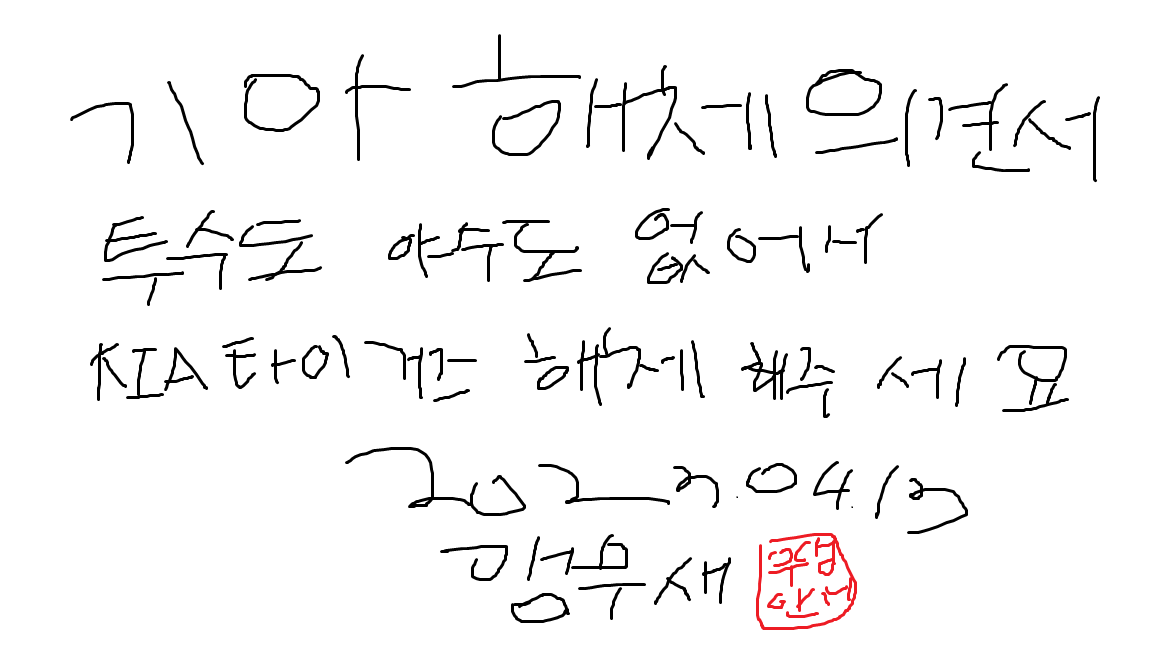 기아 해체의견서
투수도 야수도 없어서
KIA타이거즈 해체 해주세요
2022.04.13